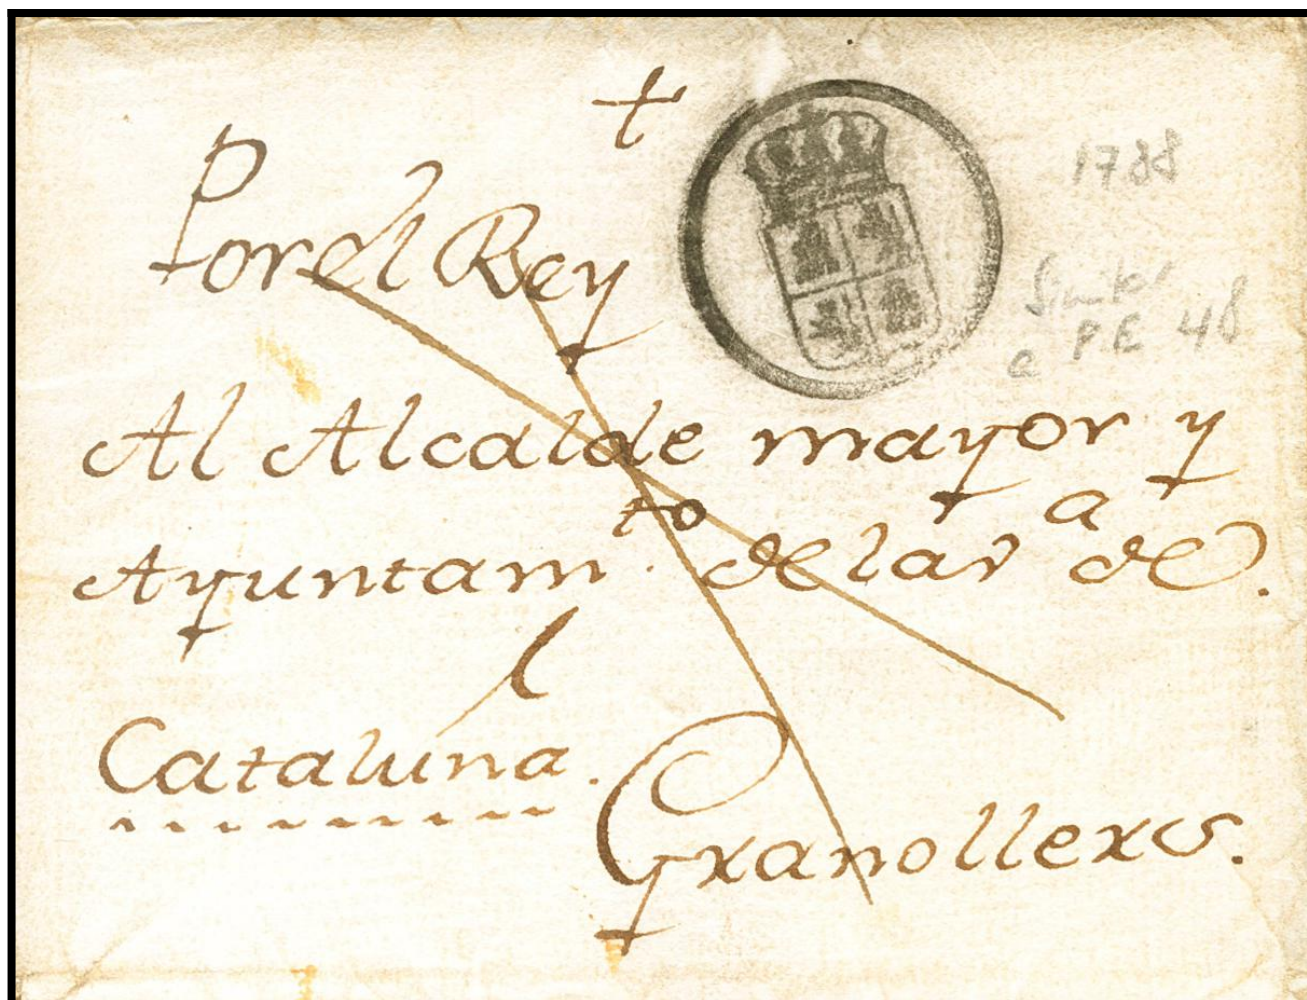 †
Por el Rey
1788
Similar
a P.E 48
Al Alcalde mayor y
Ayuntam.to de la V.a de.
Cataluña.
Granollers.